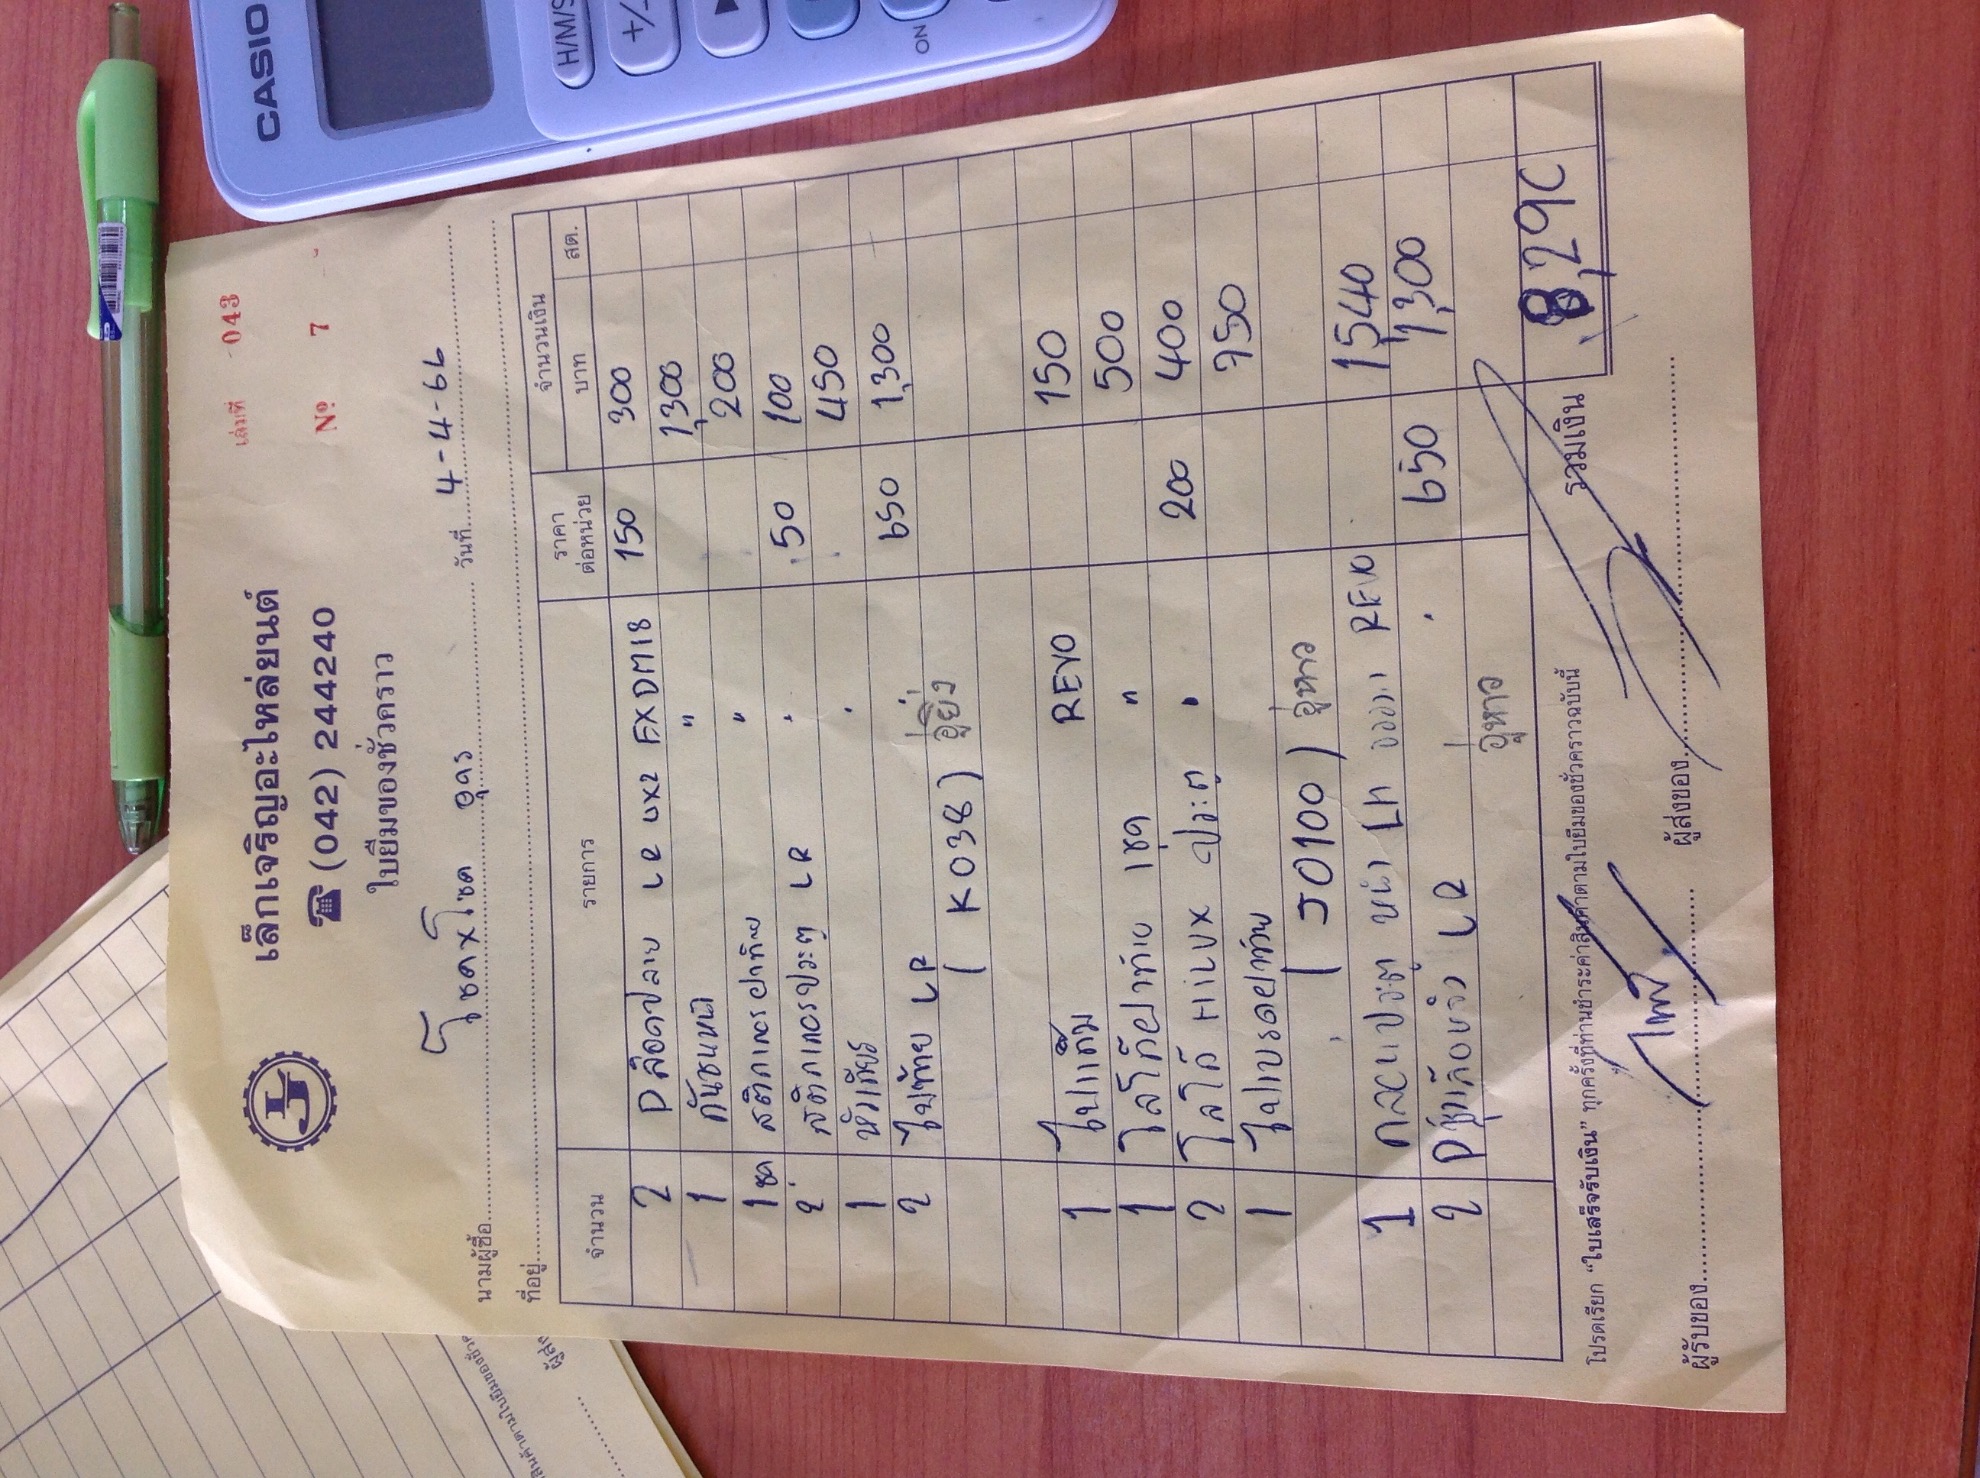 CASIO
H/M/S
+/-
ON
เล่มที่ 043
เล็กเจริญอะไหล่ยนต์
☎ (042) 244240
Nº 7
ใบยืมของชั่วคราว
นามผู้ซื้อ โชคxโชค อุดร วันที่ 4-4-66
ที่อยู่
จำนวน รายการ ราคาต่อหน่วย จำนวนเงิน
บาท สต.
2 LR EXDM18 150 300
1 กันชนหน้า " 1,300
1 ชุด สติกเกอร์ฝาท้าย " 200
2 สติกเกอร์ประตู LR " 50 100
1 450
2 ไฟท้าย LR 650 1,300
( K038 ) อู่ยิ่ง
1 REVO 150
1 โลโก้ฝาท้าย 1ชุด " 500
2 โลโก้ HILUX ประตู " 200 400
1 ไฟเบรคฝาท้าย 750
( J0100 ) อู่หาว
1 ประตู หน้า LH REVO 1,540
2 LR 650 1,300
อู่หาว
รวมเงิน 8,290
โปรดเรียก "ใบเสร็จรับเงิน" ทุกครั้งที่ท่านชำระค่าสินค้าตามใบยืมของชั่วคราวฉบับนี้
ผู้รับของ ผู้ส่งของ